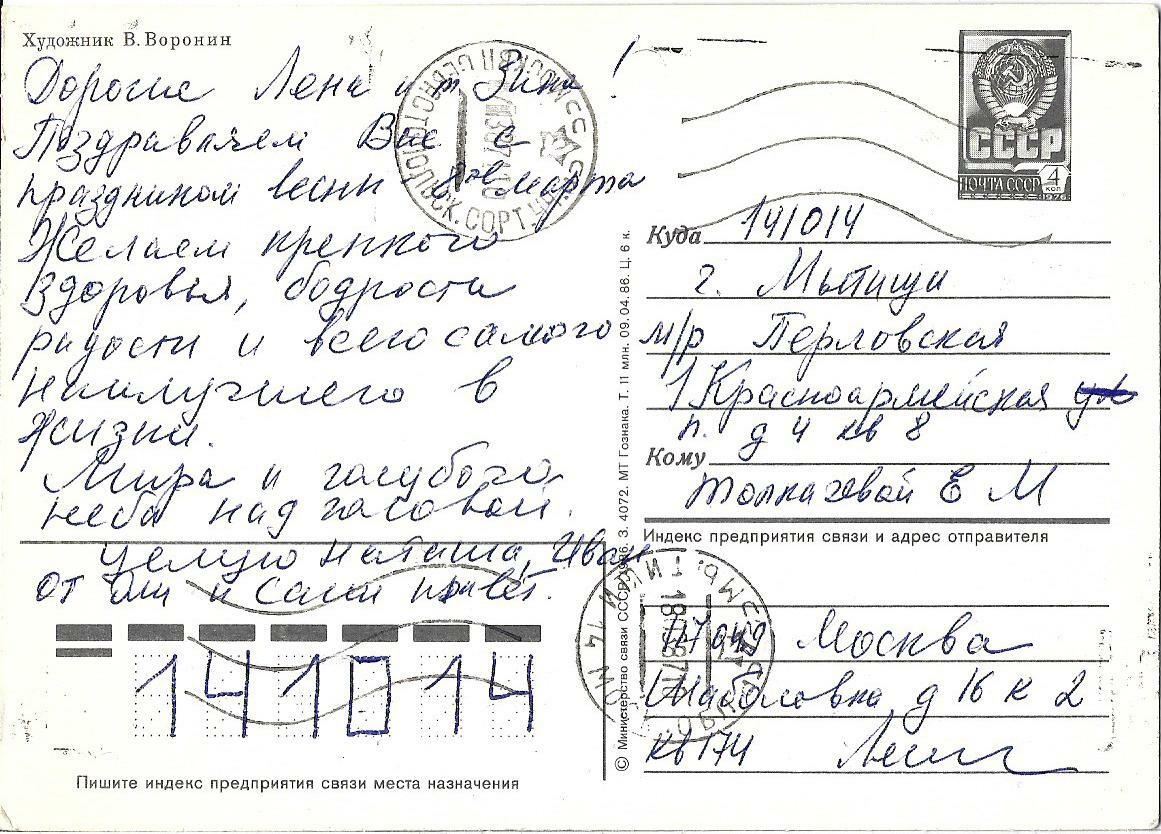 Художник В. Воронин
Дорогие Лена и т Зина!
Поздравляем Вас с
праздником весны 8ое марта
Желаем крепкого
здоровья, бодрости
радости и всего самого
наилучшего в
жизни.
Мира и голубого
неба над головой.
Целую Наташа, Иван
От Оли и Саши привет.
141014
Пишите индекс предприятия связи места назначения
© Министерство связи СССР. 1986. З. 4072. МТ Гознака. Т. 11 млн. 09.04.86. Ц. 6 к.
СССР
ПОЧТА СССР 4 коп
1976
Куда 141014
г. Мытищи
м/р Перловская
1 Красноармейская
п. д 4 кв 8
Кому
Толкачевой Е М
Индекс предприятия связи и адрес отправителя
117049 Москва
Шаболовка д 16 к 2
кв 174